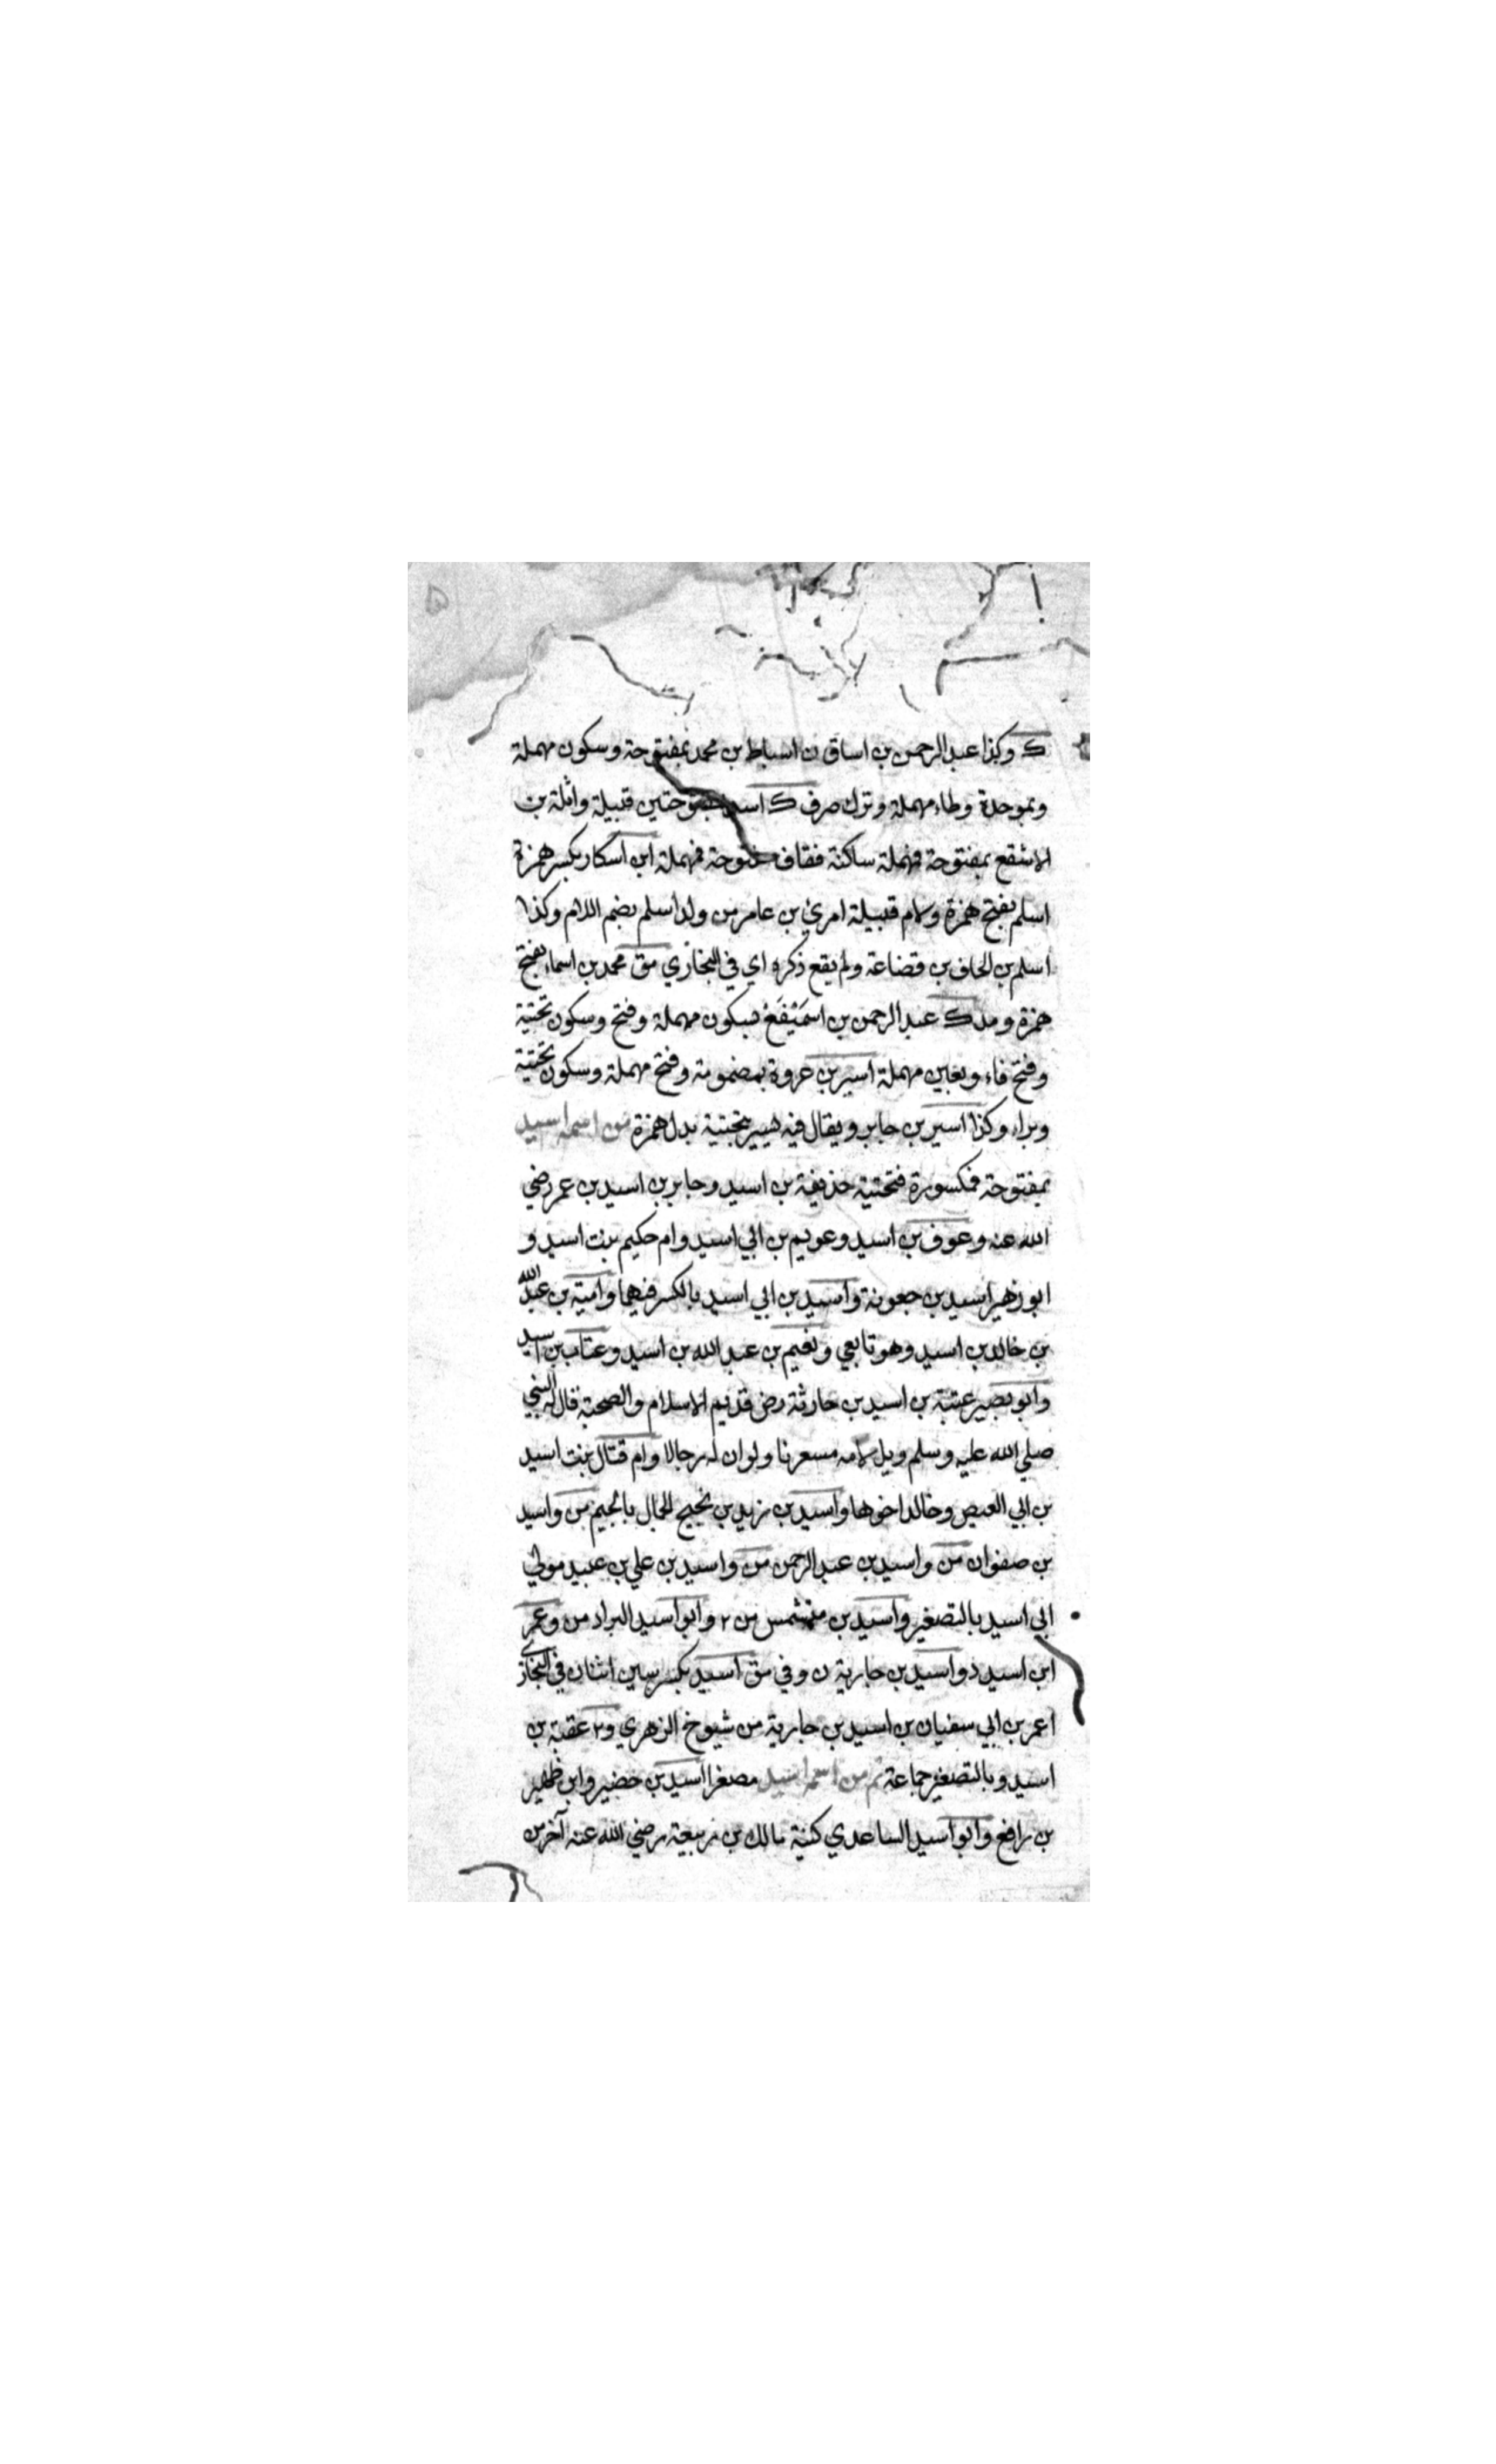 ك وكذا عبد الرحمن بن اساق ن اسباط بن محمد بمفتوحة وسكون مهملة
وبموحدة وطاء مهملة وترك صرف ك اسد بمفتوحتين قبيلة واثلة بن
الاشقع بمفتوحة فمهملة ساكنة فقاف مفتوحة فمهملة ابن اسكار بكسر همزة
اسلم بفتح همزة ولام قبيلة امرئ بن عامر من ولد اسلم بضم اللام وكذا
اسلم بن الحاف بن قضاعة ولم يقع ذكره اي في البخاري مق محمد بن اسماء بفتح
همزة ومد ك عبد الرحمن بن اسميفع بسكون مهملة وفتح وسكون تحتية
وفتح فاء وبعين مهملة اسير بن عروة بمضمومة وفتح مهملة وسكون تحتية
وبراء وكذا اسير بن جابر ويقال فيه يسير بتحتية بدل همزة من اسمه اسيد
بمفتوحة فمكسورة فتحتية حذيفة بن اسيد وجابر بن اسيد بن عمر رضي
الله عنه وعوف بن اسيد وعويم بن ابي اسيد وام حكيم بنت اسيد و
ابو زهير اسيد بن جعونة واسيد بن ابي اسيد بالكسر فيهما وامية بن عبد الله
بن خالد بن اسيد وهو تابعي ونعيم بن عبد الله بن اسيد وعتاب بن اسيد
وابو بصير عتبة بن اسيد بن حارثة رض قديم الاسلام والصحبة قال له النبي
صلي الله عليه وسلم ويل لامه مسعرنا ولو ان له رجالا وام قتال بنت اسيد
بن ابي العيص وخالد اخوها واسيد بن زيد بن نجيح الجمال بالجيم من واسيد
بن صفوان من واسيد بن عبد الرحمن من واسيد بن علي بن عبيد مولي
ابي اسيد بالتصغير واسيد بن متشمس من ٢ وابو اسيد البراد من وعمر
ابن اسيد د واسيد بن جارية ن وفي مق اسيد بكسر سين اثنان في البخاري
اعمر بن ابي سفيان بن اسيد بن جارية من شيوخ الزهري و٢ عقبة بن
اسيد وبالتصغير جماعة ثم من اسمه اسيد مصغرا اسيد بن حضير وابن ظهير
بن رافع وابو اسيد الساعدي كنية مالك بن ربيعة رضي الله عنه آخر من